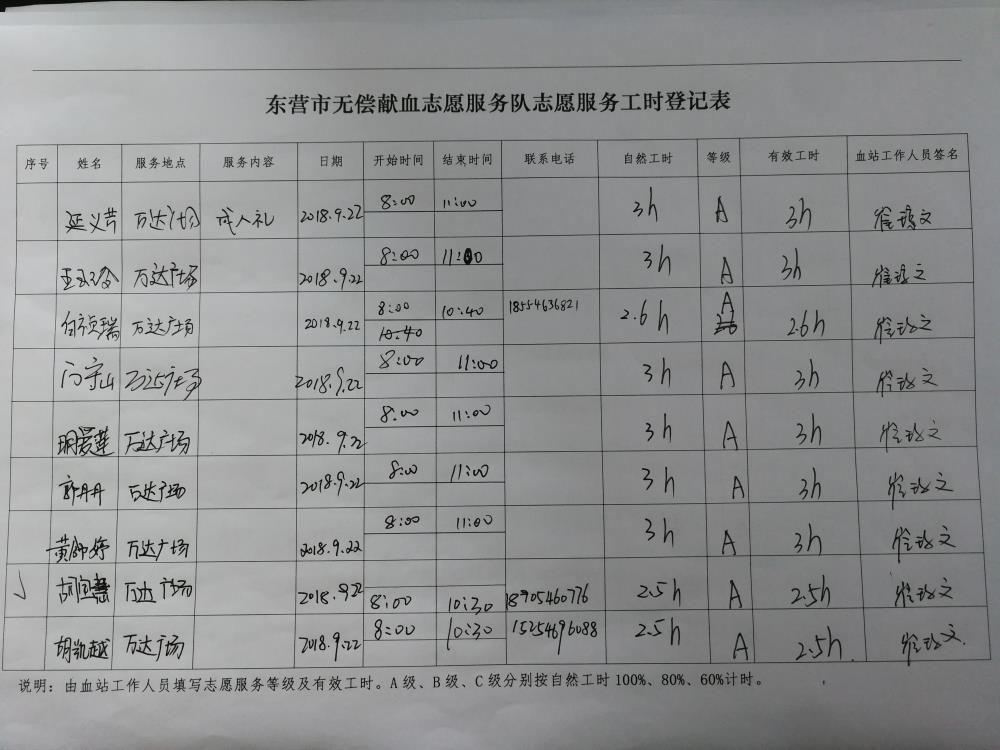 东营市无偿献血志愿服务队志愿服务工时登记表
序号 姓名 服务地点 服务内容 日期 开始时间 结束时间 联系电话 自然工时 等级 有效工时 血站工作人员签名
延义芹 万达广场 成人礼 2018.9.22 8:00 11:00 3h A 3h
万达广场 2018.9.22 8:00 11:00 3h A 3h
白祯瑞 万达广场 2018.9.22 8:00 10:40 18554636821 2.6h A 2.6h
10:40
门守山 万达广场 2018.9.22 8:00 11:00 3h A 3h
明爱莲 万达广场 2018.9.22 8:00 11:00 3h A 3h
郭丹丹 万达广场 2018.9.22 8:00 11:00 3h A 3h
黄帅婷 万达广场 2018.9.22 8:00 11:00 3h A 3h
√ 万达广场 2018.9.22 8:00 10:30 18905460776 2.5h A 2.5h
胡凯越 万达广场 2018.9.22 8:00 10:30 15254696088 2.5h A 2.5h
说明：由血站工作人员填写志愿服务等级及有效工时。A级、B级、C级分别按自然工时100%、80%、60%计时。